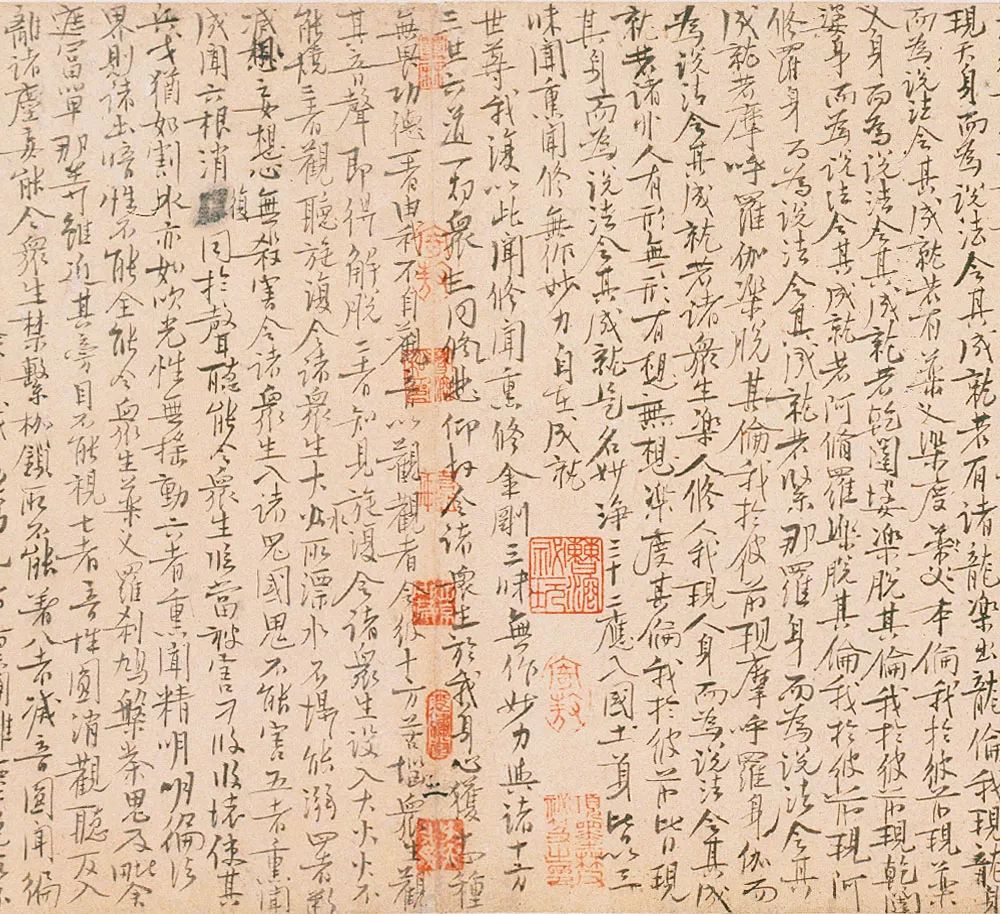 現天身而為說法令其成就若有諸龍樂出龍倫我現龍身
而為說法令其成就若有藥叉樂度藥叉本倫我於彼前現藥
叉身而為說法令其成就若乾闥婆樂脫其倫我於彼前現乾闥
婆身而為說法令其成就若阿脩羅樂脫其倫我於彼前現阿
修羅身而為說法令其成就若緊那羅身而為說法令其
成就若摩呼羅伽樂脫其倫我於彼前現摩呼羅身伽而
為說法令其成就若諸眾生樂人修人我現人身而為說法令其成
就若諸非人有形無形有想無想樂度其倫我於彼前皆現
其身而為說法令其成就是名妙淨三十二應入國土身皆以三
昧聞熏聞修無作妙力自在成就
世尊我復以此聞修聞熏修金剛三昧無作妙力與諸十方
三世六道一切眾生同悲仰故令諸眾生於我身心獲十四種
無畏功德一者由我不自觀音以觀觀者令彼十方苦惱眾生觀
其音聲即得解脫二者知見旋復令諸眾生設入大火火不
能燒三者觀聽旋復令諸眾生大水所漂水不能溺四者斷
滅想妄想心無殺害令諸眾生入諸鬼國鬼不能害五者熏聞
成聞六根消復同於聲聽能令眾生臨當被害刀段段壞使其
兵戈猶如割水亦如吹光性無搖動六者熏聞精明明徧法
界則諸幽暗性不能全能令眾生藥叉羅剎鳩槃荼鬼及毗舍
遮富單那等雖近其旁目不能視七者音性圓消觀聽返入
離諸塵妄能令眾生禁繫枷鎖所不能著八者滅音圓聞徧
曹溶秘玩